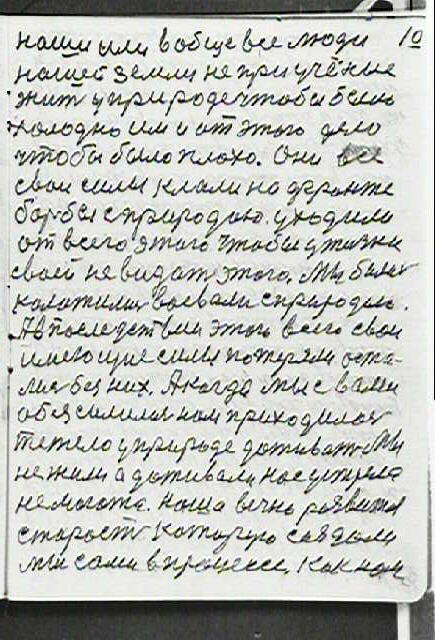 наши или вобще все люди 10
нашей земли не приучёные
жит у природе чтобы было
холодно им и от этого дело
чтобы было плохо. Они все
свои силы клали на фронте
борбы с природаю. уходили
от всего этого чтобы у жизни
своей не видат этого. Мы были
воевали с природаю.
А впоследствии этого всего свои
имеющие силы потеряли оста-
лис без них. А когда мы с вами
обезсилилис нам приходилос
тежело у природе доживат. Мы
не жили а доживали нас
немогота. наша вечно
старост которую создали
мы сами в процессе. Как нам